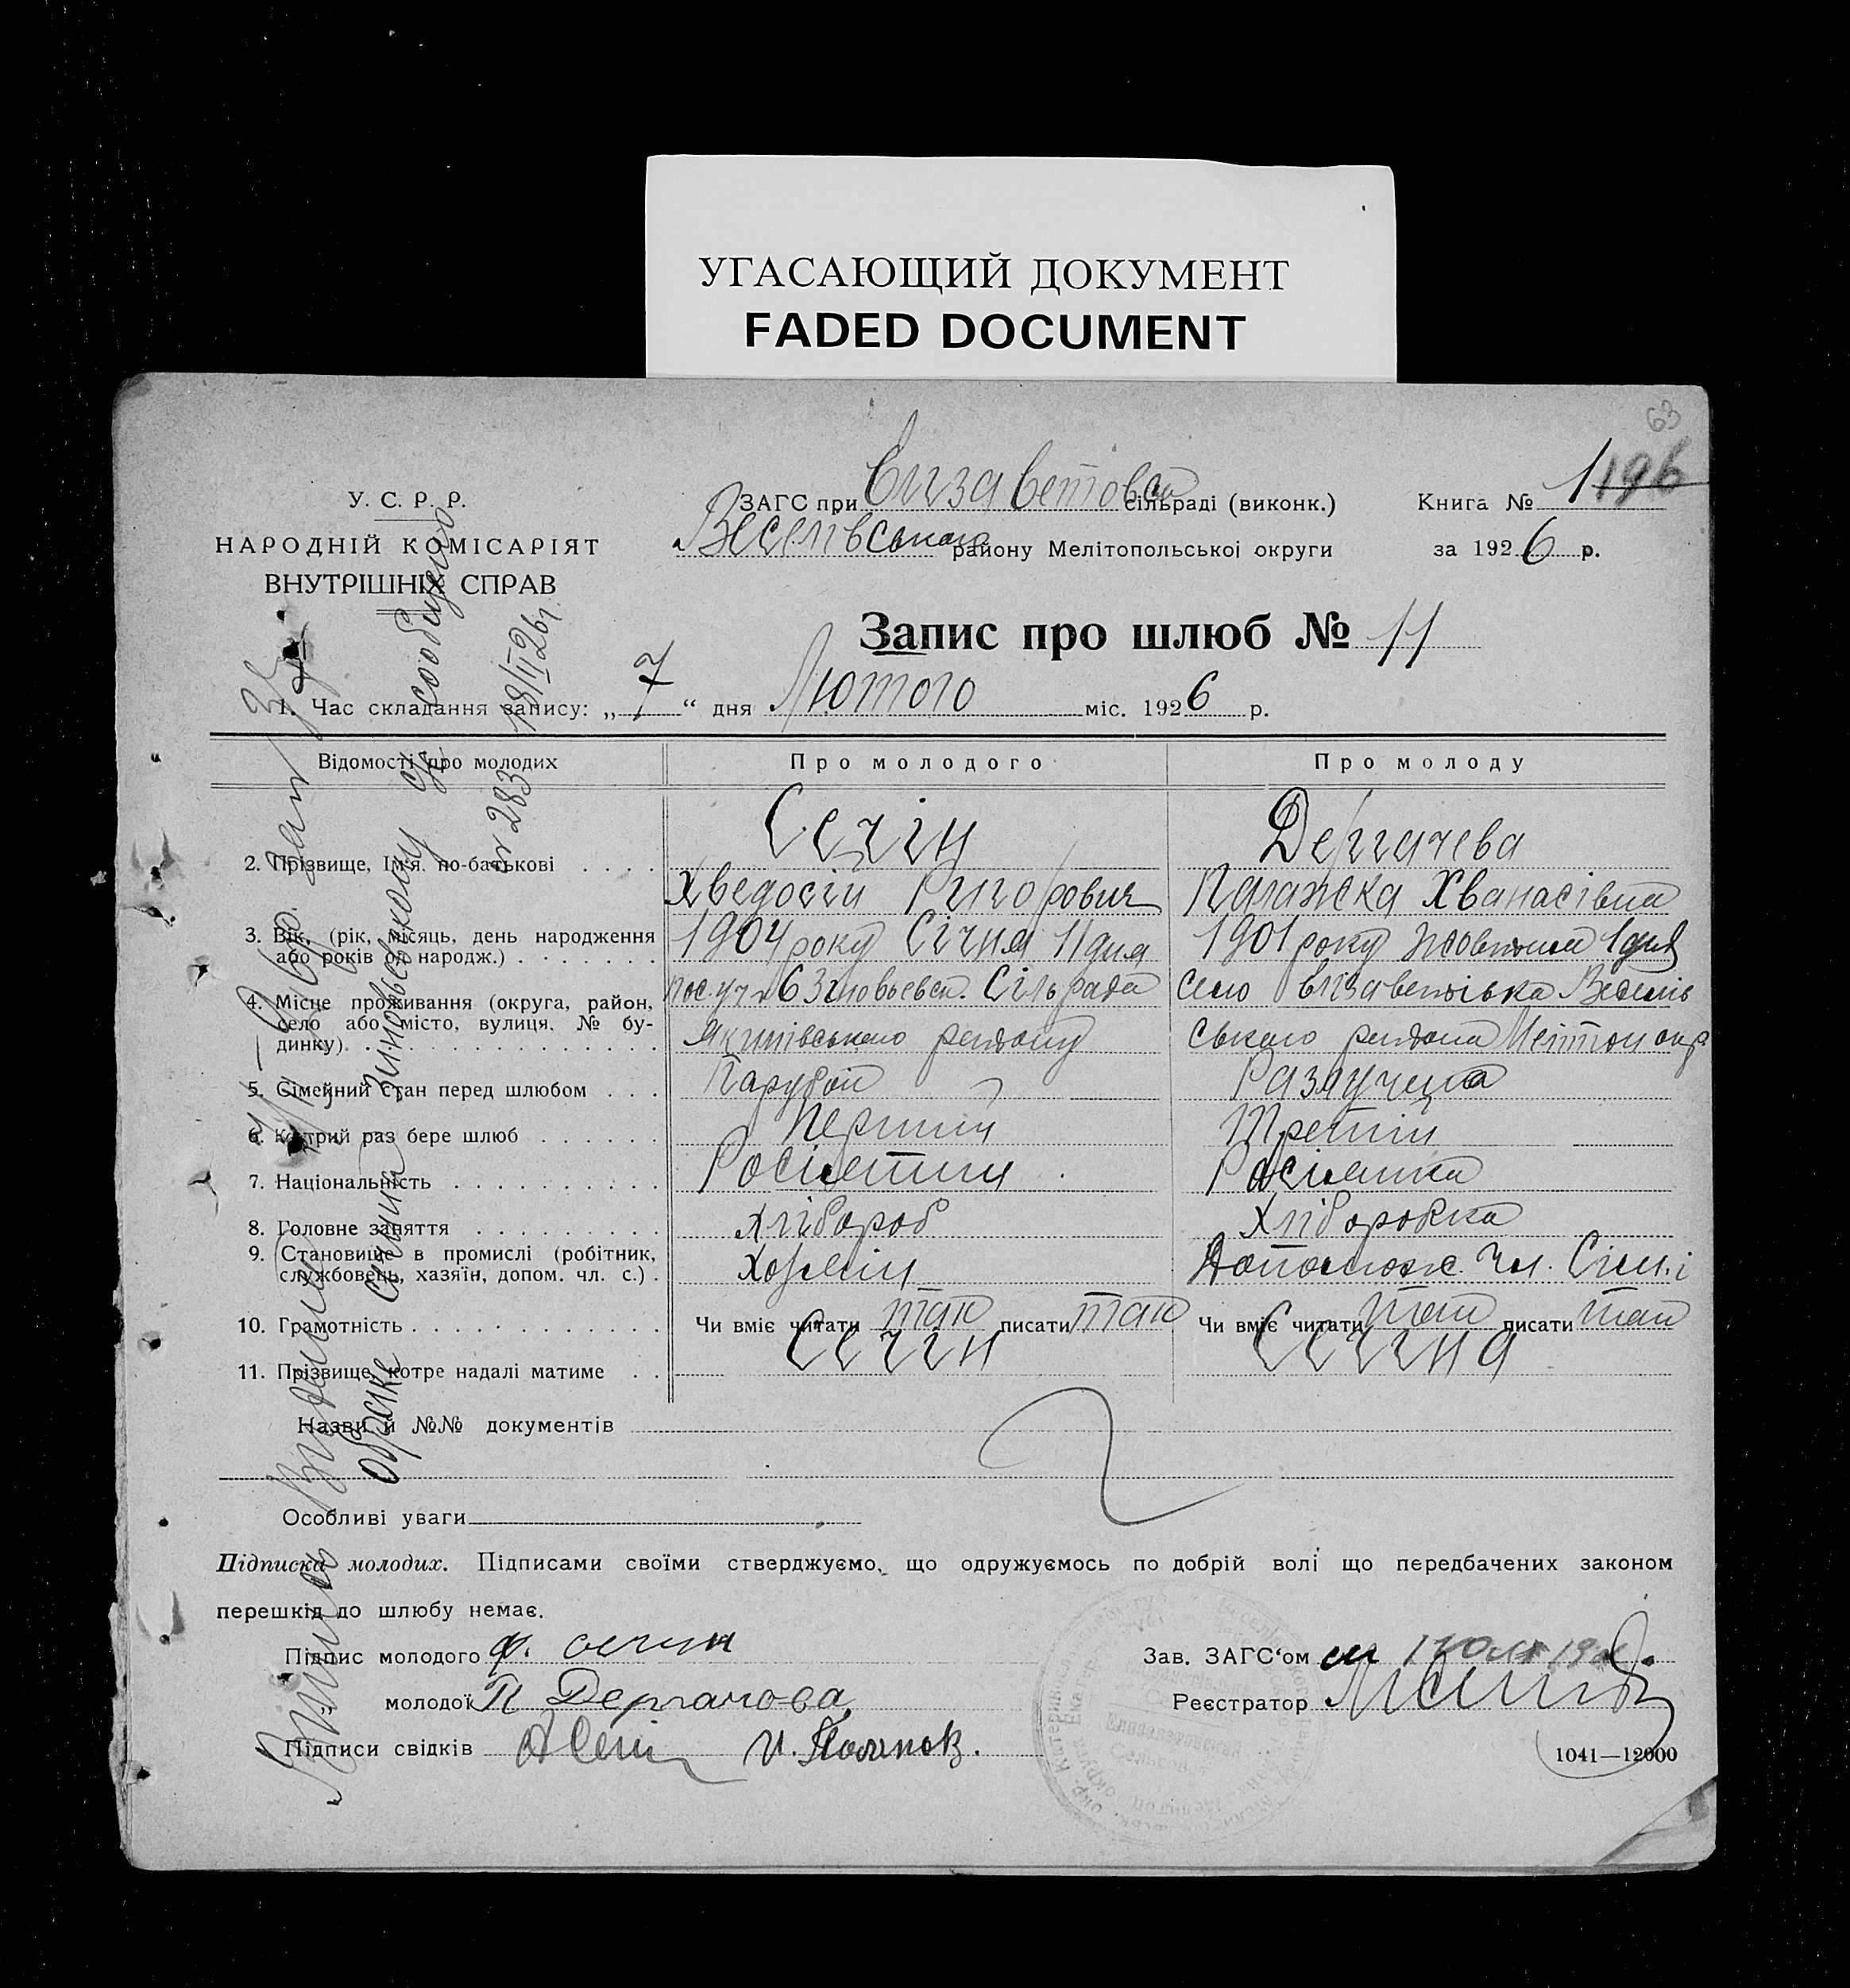 УГАСАЮЩИЙ ДОКУМЕНТ
FADED DOCUMENT
63
У. С. Р. Р.
НАРОДНІЙ КОМІСАРІЯТ
ВНУТРІШНІХ СПРАВ
ЗАГС при Єлизаветовск сільраді (виконк.)
Веселівського району Мелітопольської округи
Книга № 1 196
за 1926 р.
Запис про шлюб № 11
1. Час складання запису: „ 7 “ дня Лютого міс. 1926 р.
Відомості про молодих Про молодого Про молоду
2. Прізвище, Ім'я. по-батькові . . . . Сечін Дергачева
Хведосій Григорович Палажка Хванасівна
3. Вік, (рік, місяць, день народження або років од народж.) . . . . . . . 1904 року Січня 11 дня 1901 року жовтня 1 дня
4. Місце проживання (округа, район, село або місто, вулиця, № будинку) Пос. уч № 6 Зіновьевск. Сільрада Село Єлизаветівка Веселів
Якимівського району ського района Мелітоп окр
5. Сімейний стан перед шлюбом . . . Парубой Разлучена
6. Котрий раз бере шлюб . . . . . . Перший Третій
7. Національність . . . . . . . . . . Росіянин Росіянка
8. Головне заняття . . . . . . . . . Хлібороб Хліборобка
9. Становище в промислі (робітник, службовець, хазяїн, допом. чл. с.) . Хозяін Допомож. Чл. Сім.і
10. Грамотність . . . . . . . . . . . . Чи вміє читати так писати так Чи вміє читати так писати так
11. Прізвище, котре надалі матиме . . Сечін Сечіна
Назви й №№ документів
Особливі уваги
Підписка молодих. Підписами своїми стверджуємо, що одружуємось по добрій волі що передбачених законом
перешкід до шлюбу немає.
Підпис молодого Ф. Сечин
молодої П Дергачова
Підписи свідків
Зав. ЗАГС‘ом
Реєстратор
1041—12000
о браке Сечина Зиновьевскому с/с сообщено
№ 283 18/II 26 г.